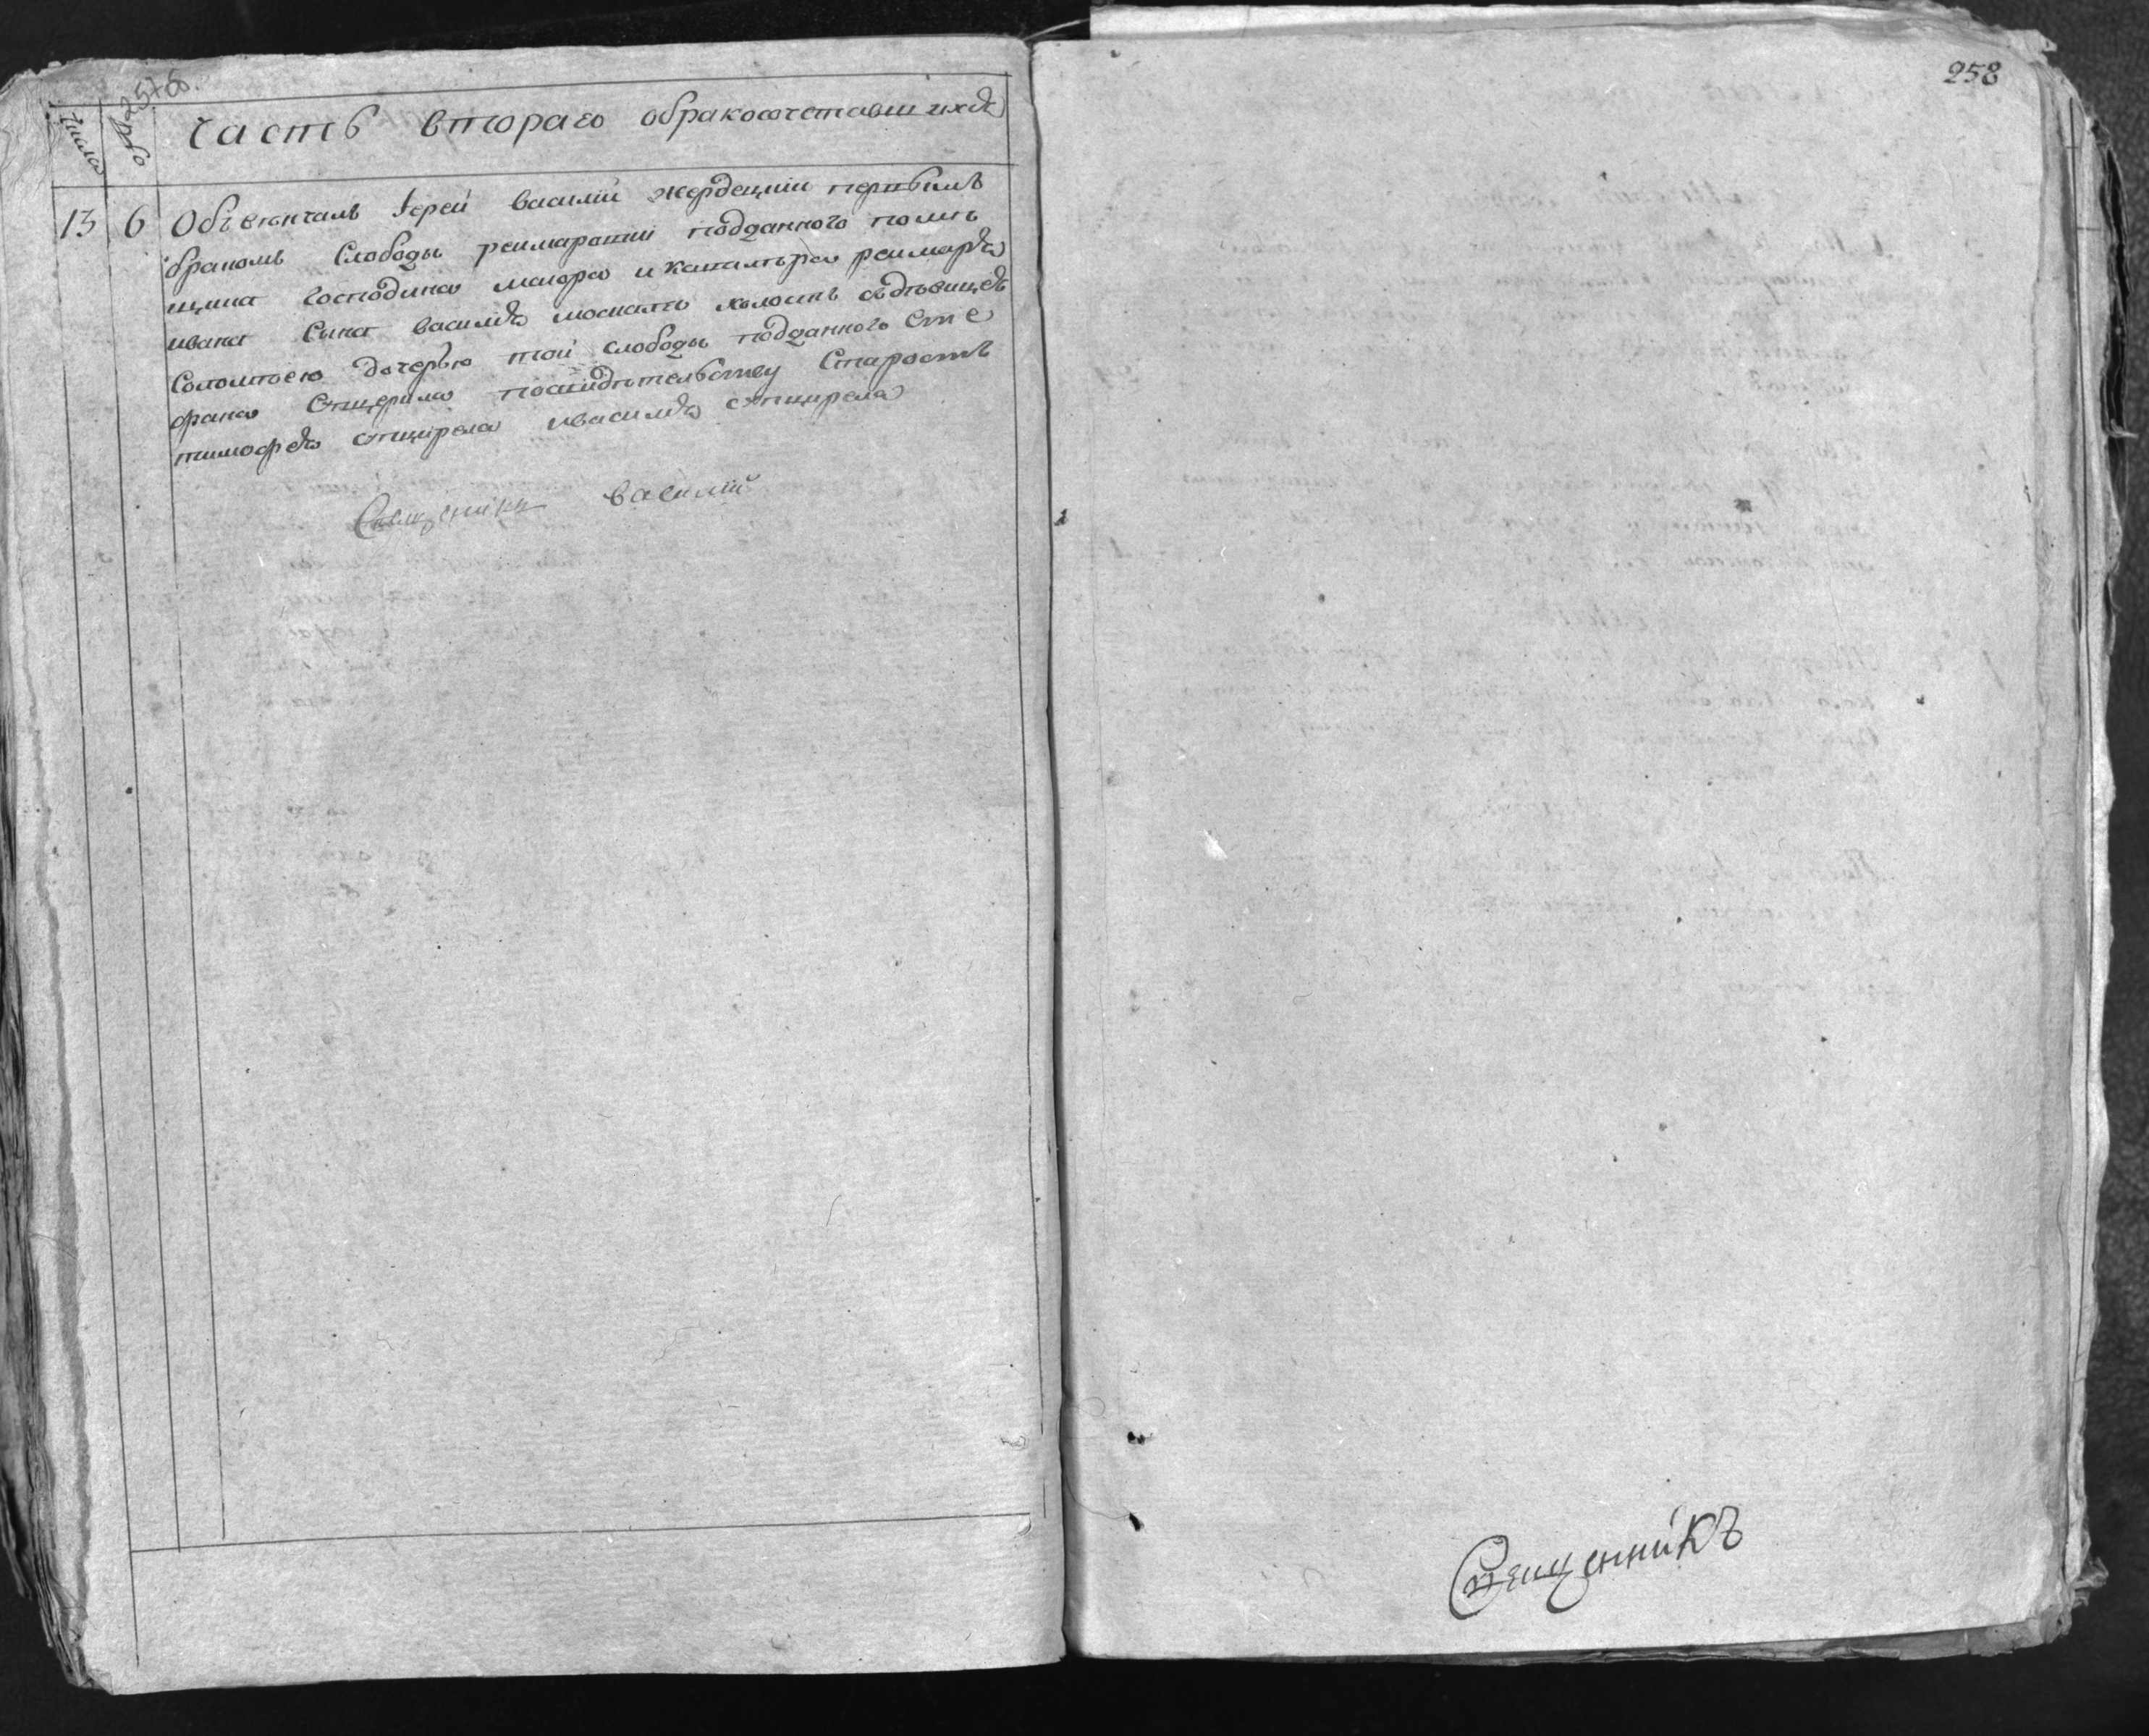 257об.
числа
Часть втораѧ обракосочетавшихсѧ
13 6 Обвѣнчалъ Іерей василій жердецкій первымъ
бракомъ Слободы реимаровки подданного помѣ
щика Господина маиора и кавалѣра реимарса
ивана Сына василѧ москаля холостъ сдѣвицеѧ
Соломиею дочерью той слободы подданного Сте
фана Стицерила посвидѣтельству Старосты
тимофеѧ стицирела ивасилѧ стицирела
Священникъ василій
258
Священникъ